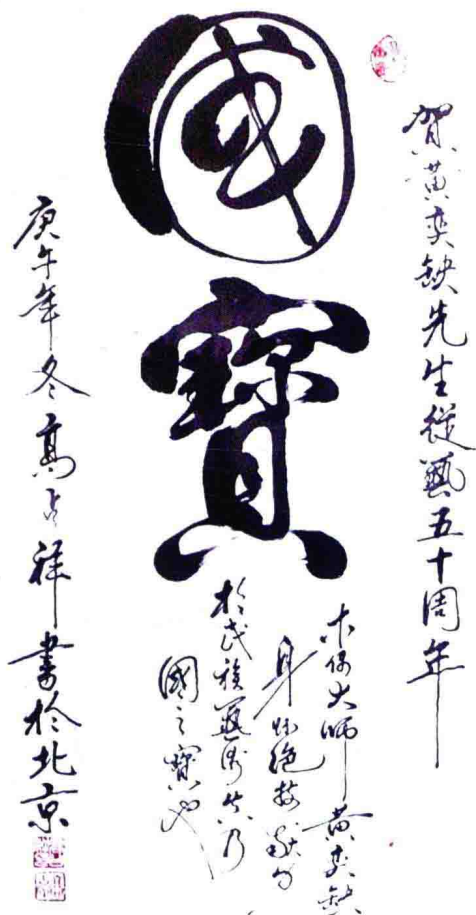 賀黄奕缺先生從藝五十周年
國寶
木偶大師黄奕缺
身怀絶技献
於民族藝術真乃
國之寶也
庚午年冬高占祥書於北京